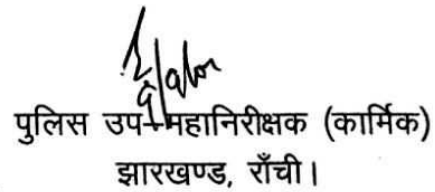 पुलिस उप-महानिरीक्षक (कार्मिक)
झारखण्ड, राँची।